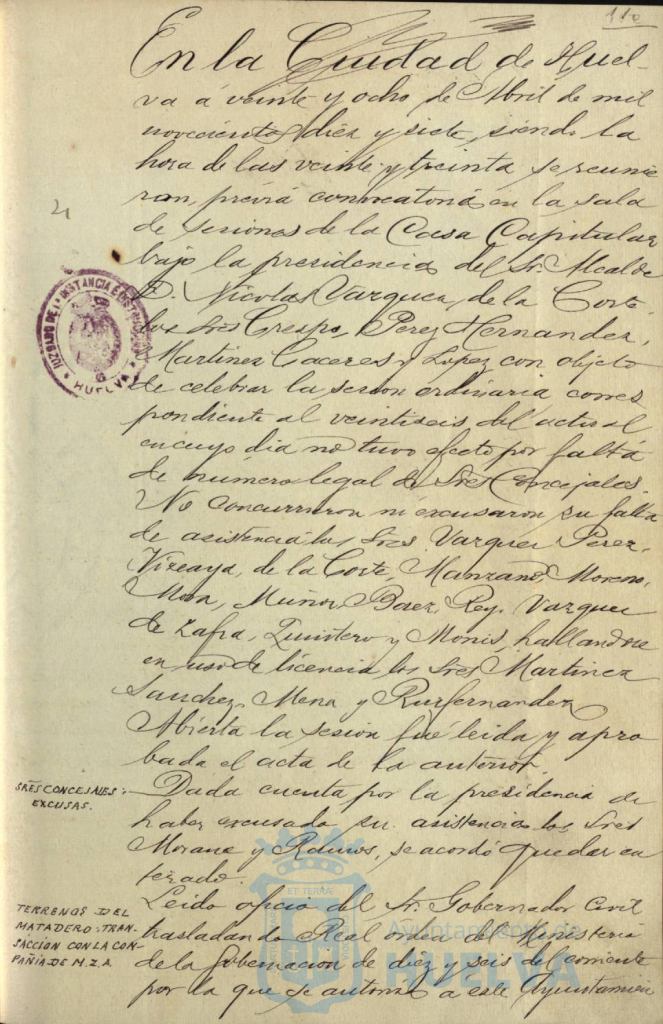 110
En la Ciudad de Huel-
va á veinte y ocho de Abril de mil
novecientos diez y siete, siendo la
hora de las veinte y treinta se reunie
ron, previa convocatoria en la sala
de sesiones de la Casa Capitular
bajo la presidencia del Sr. Alcalde
D. Nicolas Vazquez de la Corte
los Sres Crespo, Perez Hernandez,
Martinez Caceres y Lopez con objeto
de celebrar la sesion ordinaria corres
pondiente al veintiseis del actual
en cuyo dia no tuvo efecto por falta
de número legal de Sres Concejales.
No concurrieron ni excusaron su falta
de asistencia los Sres Vazquez Perez,
Vizcaya, de la Corte, Manzano, Moreno,
Mora, Muñoz, Baez, Rey, Vazquez
de Zafra, Quintero y Monis, hallandose
en uso de licencia los Sres Martinez
Sanchez, Mena y Ruifernandez
Abierta la sesion fué leida y apro
bada el acta de la anterior.
SRES CONCEJALES:
EXCUSAS.
Dada cuenta por la presidencia de
haber excusado su asistencia los Sres
Morana y se acordó quedar en
terado.
TERRENOS DEL
MATADERO: TRAN-
SACCION CON LA COM-
PAÑIA DE M.Z.A.
Leido oficio del Sr. Gobernador Civil
trasladando Real orden del Ministerio
de la Gobernacion de diez y seis del corriente
por la que se autoriza a este Ayuntamien
JUZGADO DE 1ª INSTANCIA E INSTRUCCION
HUELVA
Ayuntamiento de
HUELVA